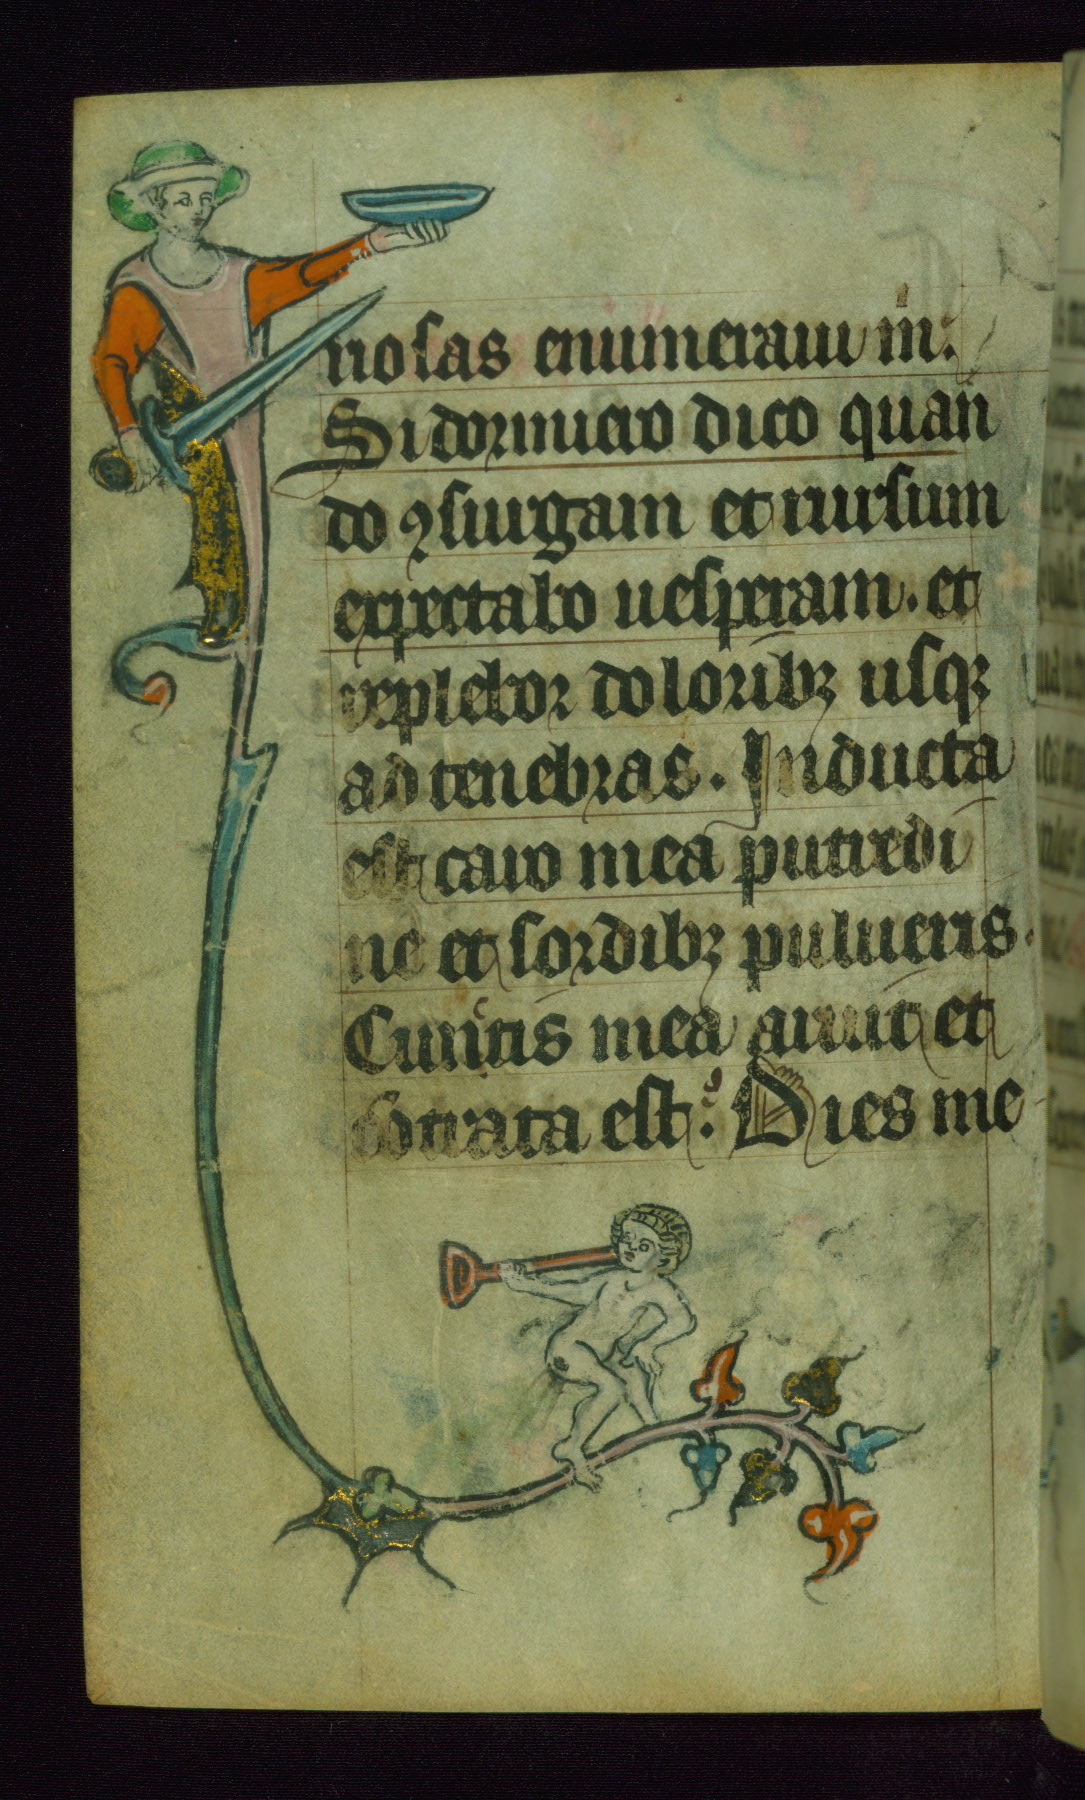 riosas enumeraui m̄.
Si dormiero dico quan
do ꝯsurgam et rursum
expectabo uesperam. et
replebor doloribꝫ usqꝫ
ad tenebras. Inducta
est caro mea putredi
ne et sordibꝫ pulueris.
Cuntis mea aruit et
cōtrata est. Dies me